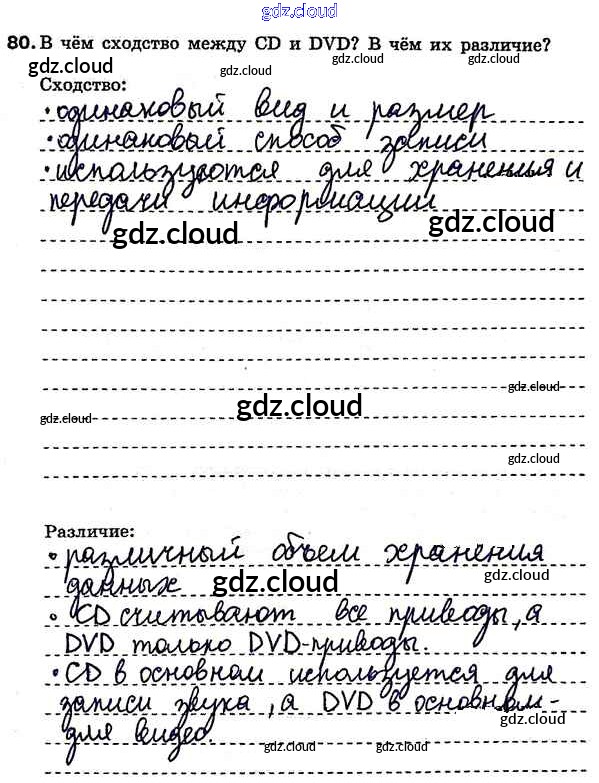 gdz.cloud
80. В чём сходство между CD и DVD? В чём их различие?
gdz.cloud gdz.cloud gdz.cloud
Сходство:
• одинаковый вид и размер
• одинаковый способ записи
• используются для хранения и
передачи информации
gdz.cloud gdz.cloud
gdz.cloud
gdz.cloud gdz.cloud
gdz.cloud
Различие:
• различный объем хранения
данных gdz.cloud gdz.cloud
• CD считывают все приводы, а
DVD только DVD-приводы.
• CD в основном используется для
записи звука, а DVD в основном-
для видео.
gdz.cloud
gdz.cloud gdz.cloud